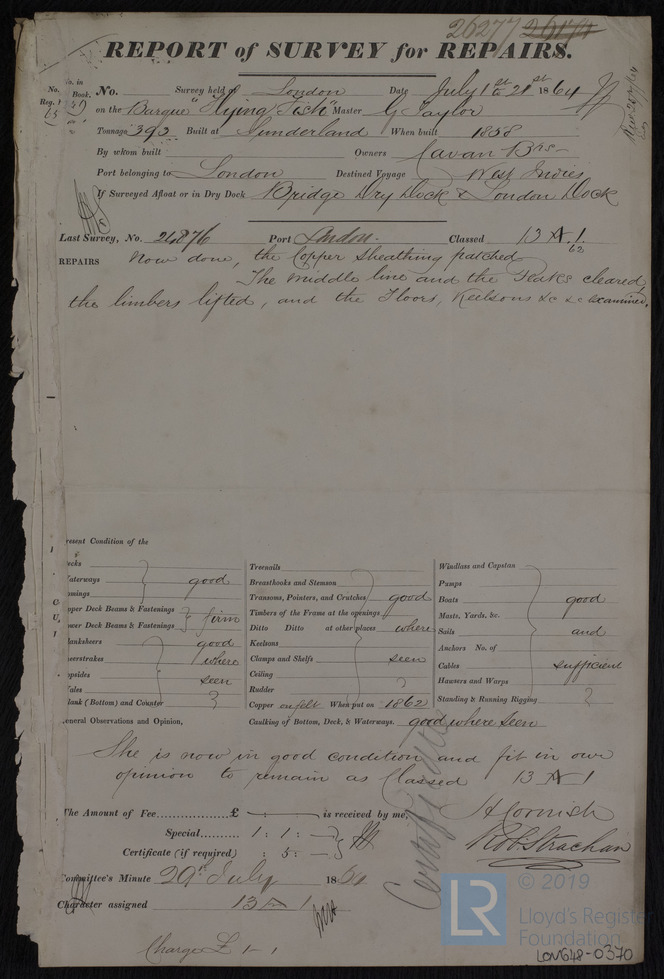 26277
REPORT of SURVEY for REPAIRS.
No. in Book.
No. Survey held at London Date July 1st to 21st 1864
Reg.
on the Barque "Flying Fish" Master G Taylor
Tonnage 393 Built at Sunderland When built 1858
By whom built Owners Cavan Bros
Port belonging to London Destined Voyage West Indies
If Surveyed Afloat or in Dry Dock Bridge Dry Dock & London Dock
Last Survey, No. 24876 Port London. Classed 13 A.1.
62
REPAIRS Now done, the Copper Sheathing patched
The middle line and the Flats cleared,
the limbers lifted, and the Floors, Keelsons &c &c examined.
resent Condition of the
ecks
aterways good
omings
pper Deck Beams & Fastenings
ower Deck Beams & Fastenings firm
lanksheers good
heerstrakes where
opsides seen
ales
lank (Bottom) and Counter
Treenails
Breasthooks and Stemson
Transoms, Pointers, and Crutches good
Timbers of the Frame at the openings
Ditto Ditto at other places where
Keelsons
Clamps and Shelfs seen
Ceiling
Rudder
Copper on felt When put on 1862
Windlass and Capstan
Pumps
Boats good
Masts, Yards, &c.
Sails and
Anchors No. of
Cables sufficient
Hawsers and Warps
Standing & Running Rigging
eneral Observations and Opinion, Caulking of Bottom, Deck, & Waterways. good where seen
She is now in good condition and fit in our
opinion to remain as Classed 13 A 1
The Amount of Fee £ is received by me,
H Cornish
Special 1 : 1 : -
Robt Strachan
Certificate (if required) : 5 : -
Committee's Minute 29th July 1864
Character assigned 13 A 1
Charge £ 1-1
LR © 2019
Lloyd's Register
Foundation
LON648-0370